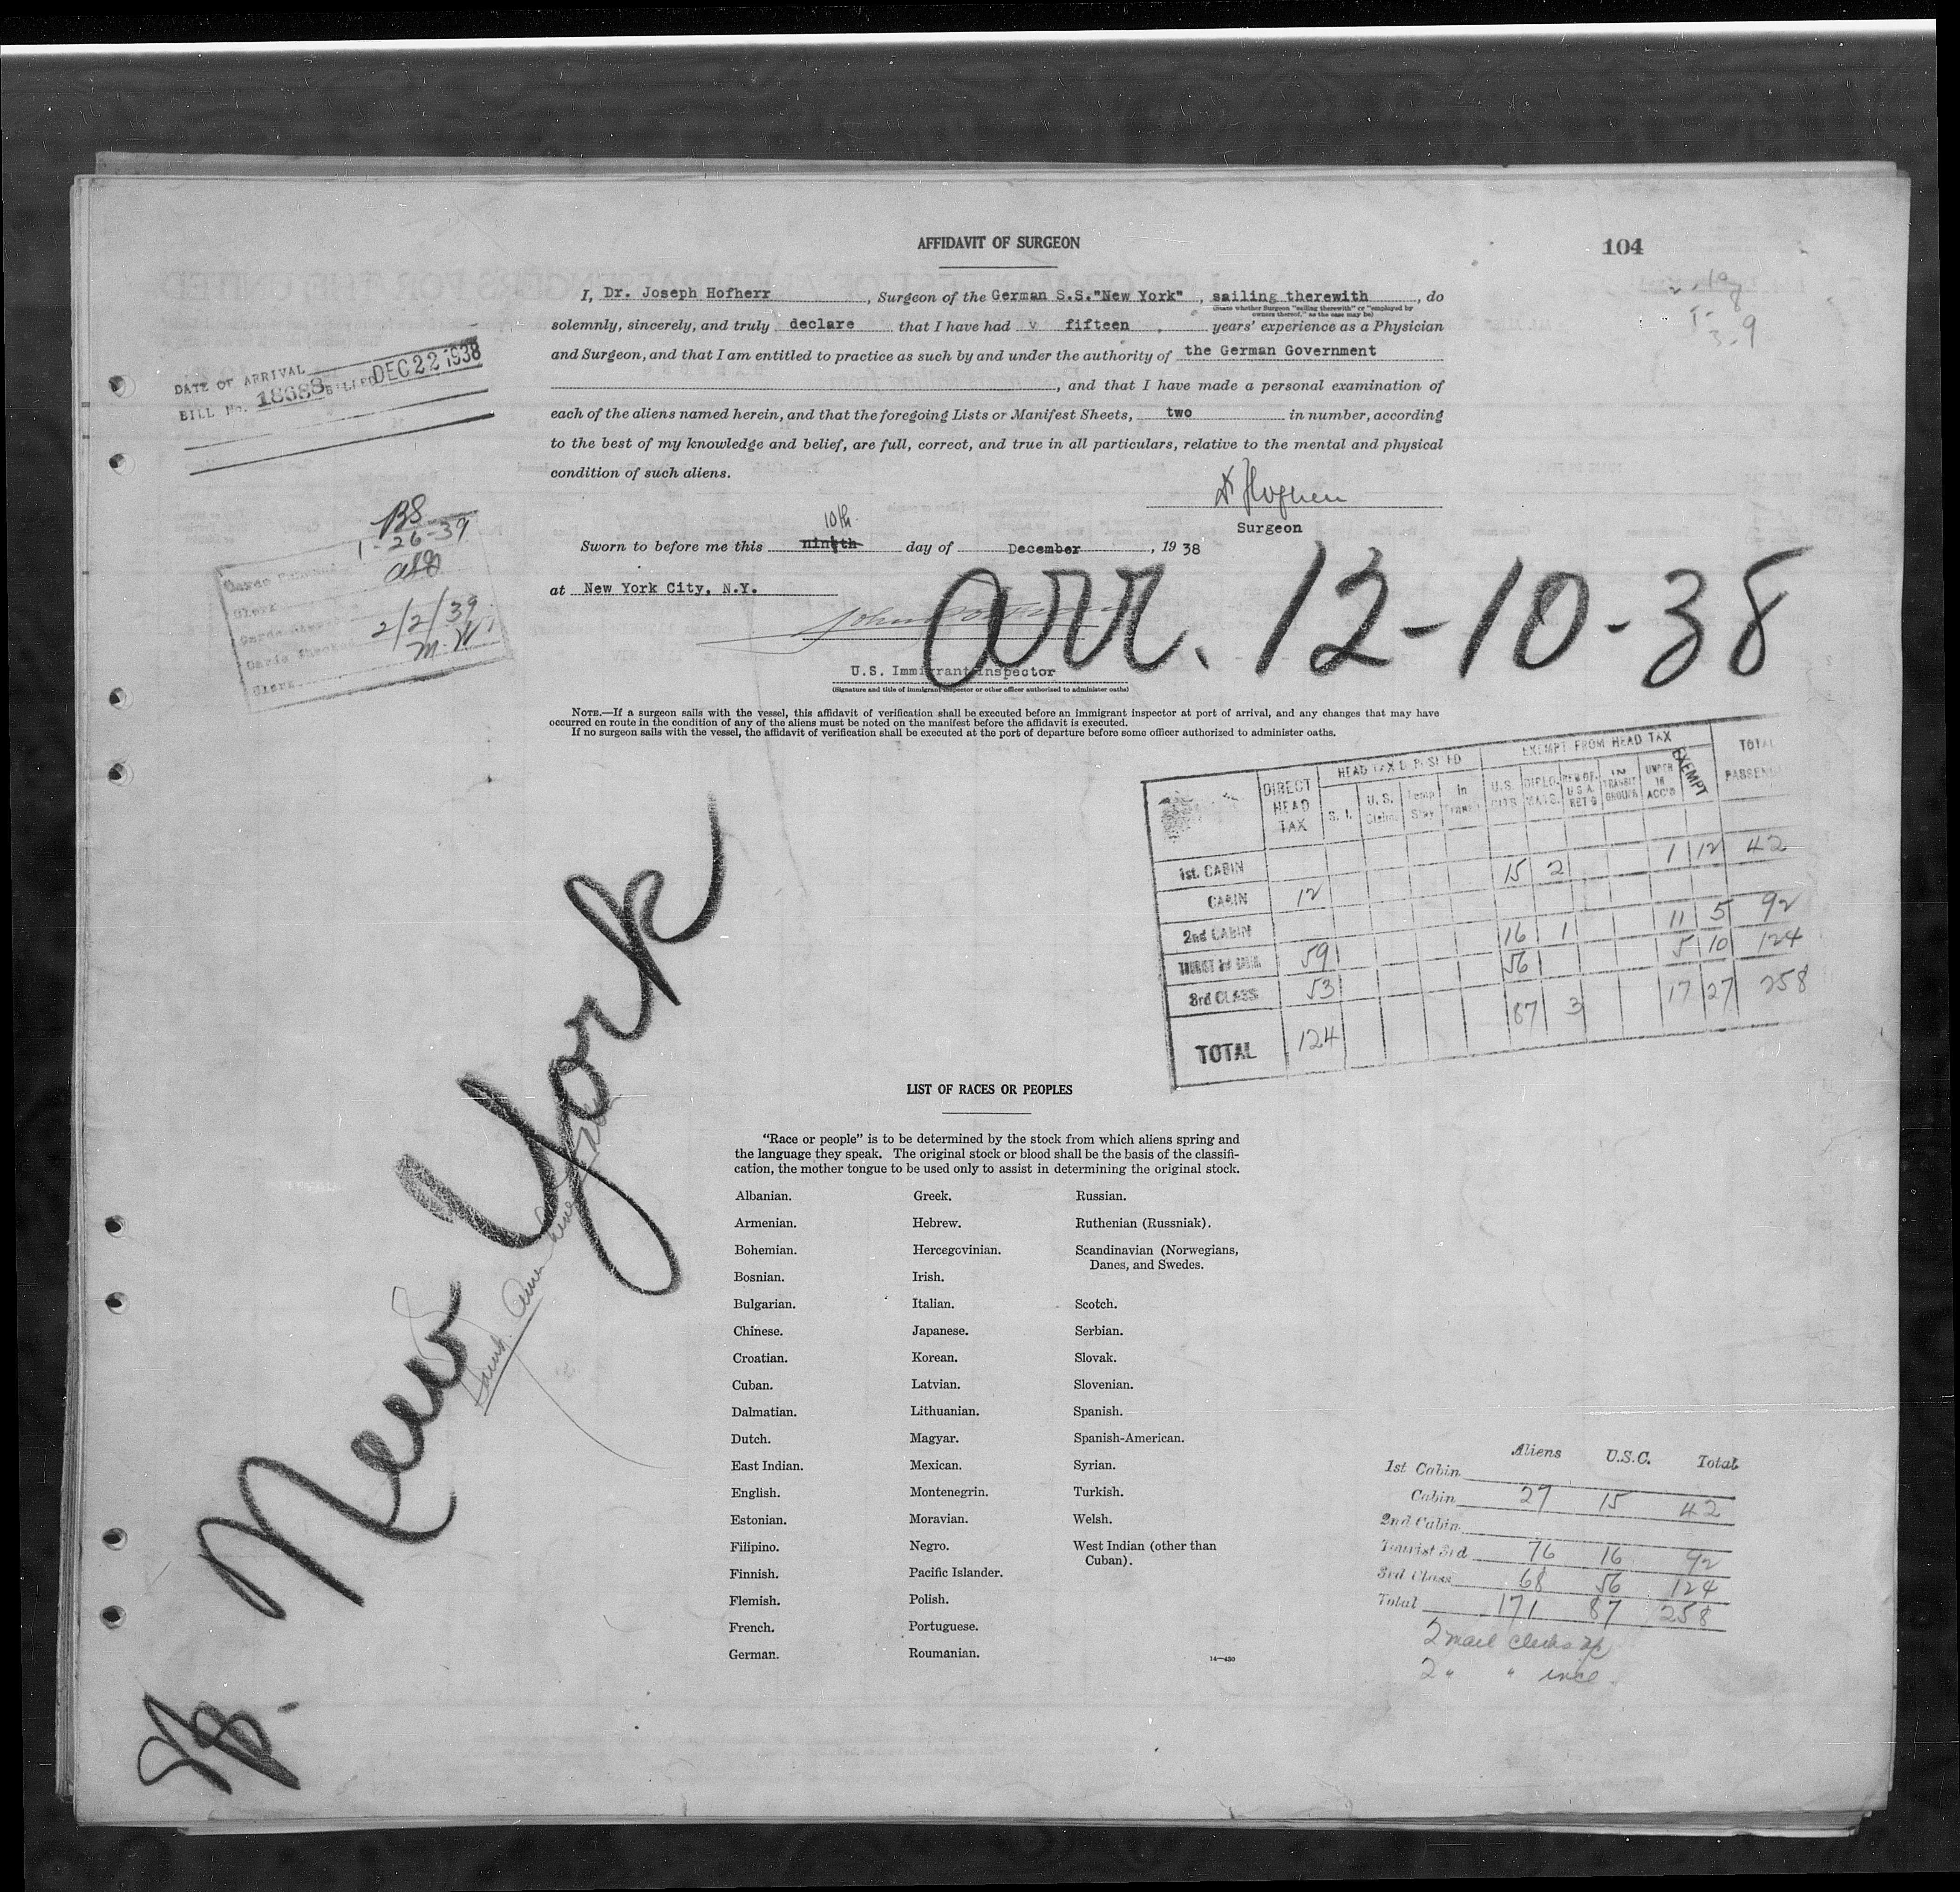 AFFIDAVIT OF SURGEON
104
I, Dr. Joseph Hofherr, Surgeon of the German S.S."New York", sailing therewith, do
(State whether Surgeon "sailing therewith" or "employed by owners thereof," as the case may be)
solemnly, sincerely, and truly declare that I have had v fifteen years' experience as a Physician
and Surgeon, and that I am entitled to practice as such by and under the authority of the German Government
, and that I have made a personal examination of
each of the aliens named herein, and that the foregoing Lists or Manifest Sheets, two in number, according
to the best of my knowledge and belief, are full, correct, and true in all particulars, relative to the mental and physical
condition of such aliens.
Surgeon
10th
Sworn to before me this ninth day of December, 1938
at New York City, N.Y.
arr. 12-10-38
U.S. Immigrant Inspector
(Signature and title of immigrant inspector or other officer authorized to administer oaths)
NOTE.—If a surgeon sails with the vessel, this affidavit of verification shall be executed before an immigrant inspector at port of arrival, and any changes that may have
occurred en route in the condition of any of the aliens must be noted on the manifest before the affidavit is executed.
If no surgeon sails with the vessel, the affidavit of verification shall be executed at the port of departure before some officer authorized to administer oaths.
DATE OF ARRIVAL
BILL No. 18688 BILLED DEC 22 1938
BS
1-26-39
Clerk
Cards Checked 2/2/39
Clerk M.W.
DIRECT HEAD TAX
EXEMPT FROM HEAD TAX
S. I.
U. S. Claims
Temp Stay
In Transit
U.S. CITS
DIPLO MATS.
IN TRANSIT GROUP
UNDER 16 ACC'D
EXEMPT
TOTAL
1st. CABIN
CABIN 12 15 2 1 12 42
2nd CABIN
TOURIST 3rd CABIN 59 16 1 11 5 92
3rd CLASS 53 56 5 10 124
TOTAL 124 87 3 17 27 258
New York
LIST OF RACES OR PEOPLES
"Race or people" is to be determined by the stock from which aliens spring and
the language they speak. The original stock or blood shall be the basis of the classifi-
cation, the mother tongue to be used only to assist in determining the original stock.
Albanian.
Armenian.
Bohemian.
Bosnian.
Bulgarian.
Chinese.
Croatian.
Cuban.
Dalmatian.
Dutch.
East Indian.
English.
Estonian.
Filipino.
Finnish.
Flemish.
French.
German.
Greek.
Hebrew.
Hercegovinian.
Irish.
Italian.
Japanese.
Korean.
Latvian.
Lithuanian.
Magyar.
Mexican.
Montenegrin.
Moravian.
Negro.
Pacific Islander.
Polish.
Portuguese.
Roumanian.
Russian.
Ruthenian (Russniak).
Scandinavian (Norwegians,
Danes, and Swedes.
Scotch.
Serbian.
Slovak.
Slovenian.
Spanish.
Spanish-American.
Syrian.
Turkish.
Welsh.
West Indian (other than
Cuban).
14—430
Aliens U.S.C. Total
1st Cabin
Cabin 27 15 42
2nd Cabin
Tourist 3rd 76 16 92
3rd Class 68 56 124
Total 171 87 258
2 mail clerks
2 " " incl.